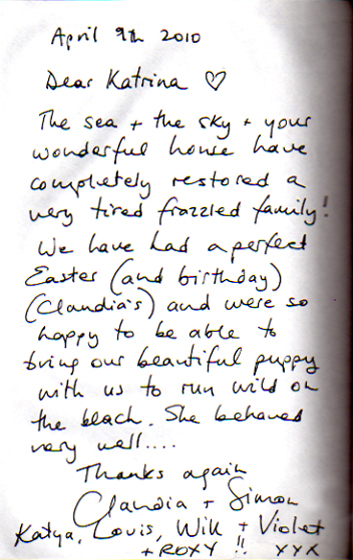 April 9th 2010
Dear Katrina ♡
The sea + the sky + your
wonderful house have
completely restored a
very tired frazzled family!
We have had a perfect
Easter (and birthday)
(Claudia's) and were so
happy to be able to
bring our beautiful puppy
with us to run wild on
the beach. She behaved
very well....
Thanks again
Claudia + Simon
Katya, Louis, Will + Violet
+ ROXY !! XYX